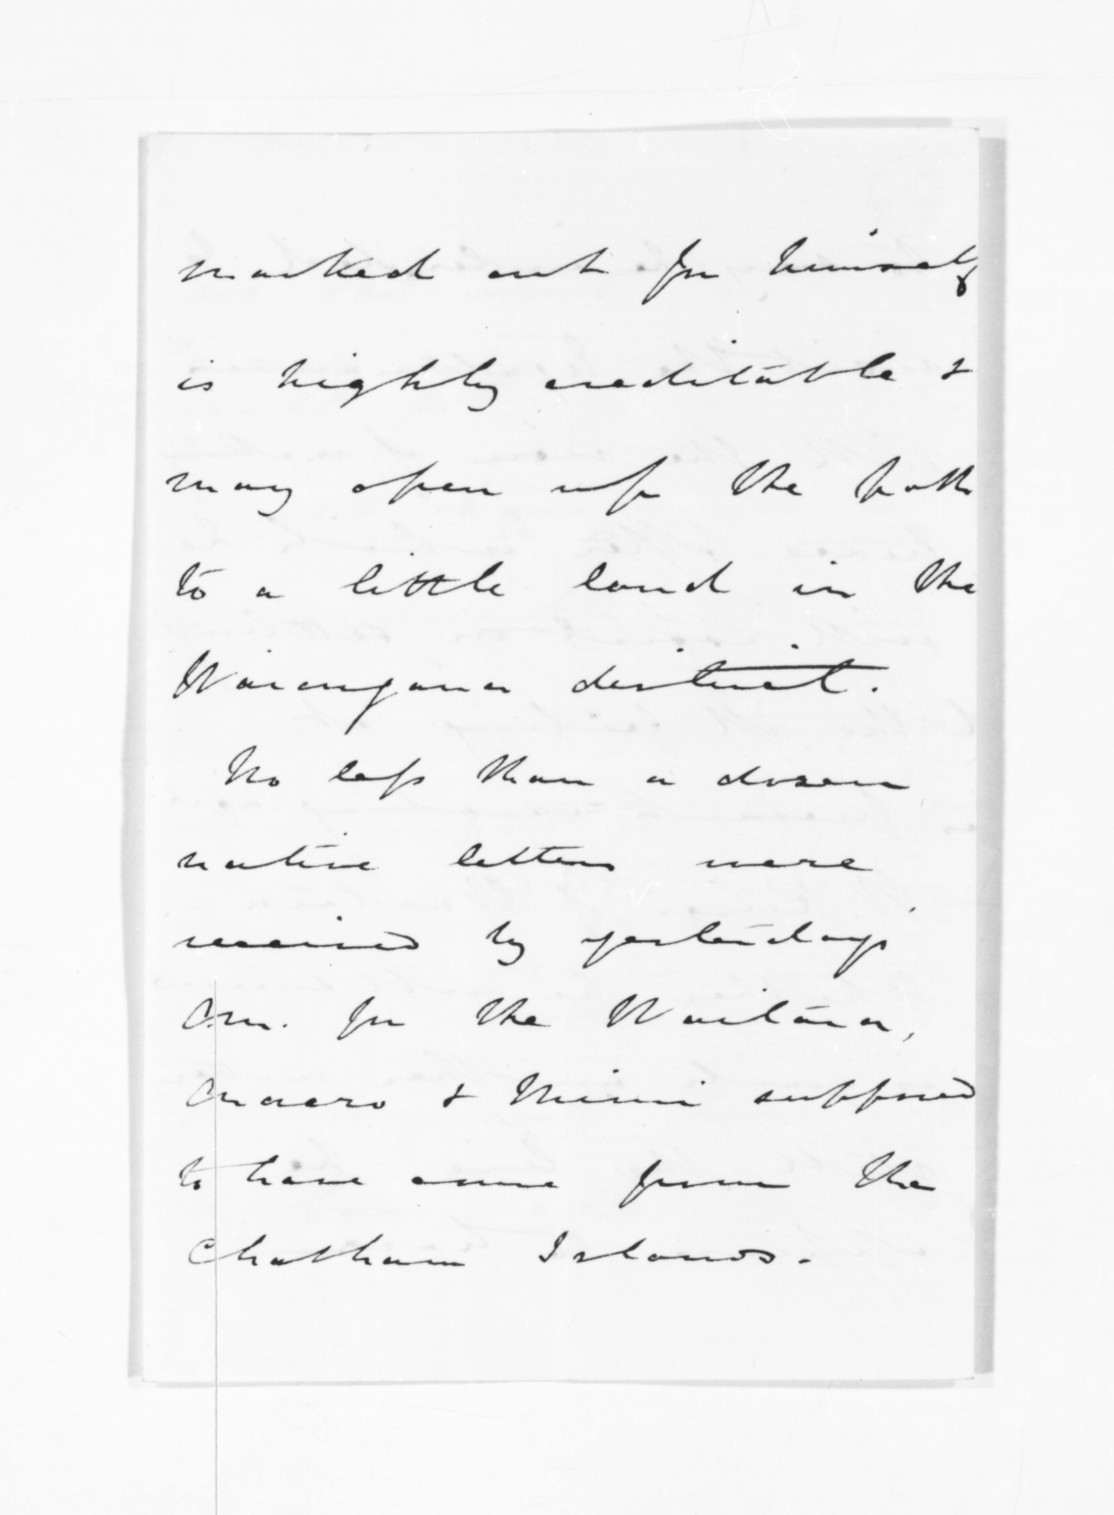 marked out for himself
is highly creditable &
may open up the path
to a little land in the
Waiongana district.
No less than a dozen
native letters were
received by yesterday's
for the Waitara,
& Mimi supposed
to have come from the
Chatham Islands.